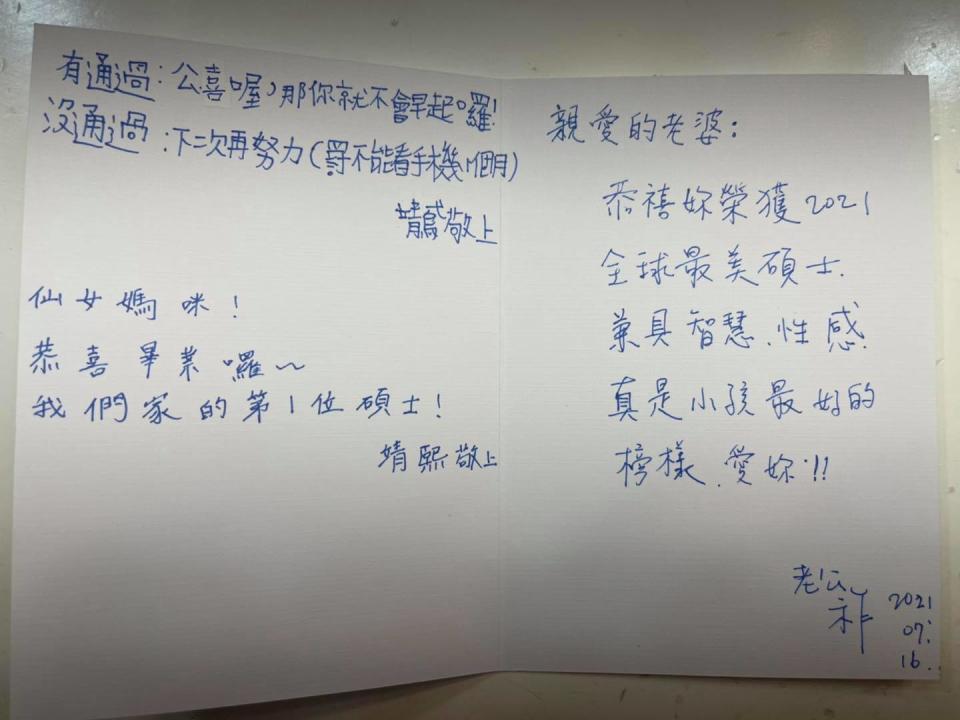 有通過：公喜喔，那你就不會早起囉！
沒通過：下次再努力（罸不能看手機1個月）
敬上
仙女媽咪！
恭喜畢業囉～
我們家的第1位碩士！
靖熙敬上
親愛的老婆：
恭禧妳榮獲2021
全球最美碩士.
兼具智慧.性感.
真是小孩最好的
榜樣.愛妳!!
老公
2021
07.
16..